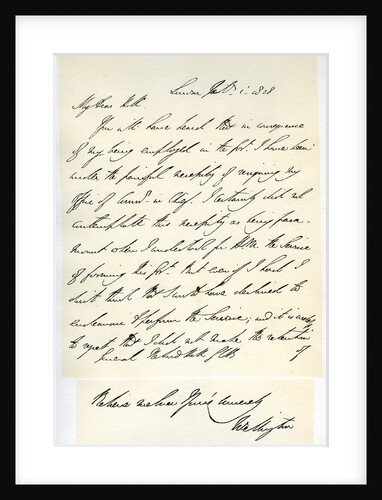 London Feb. 1. 1828
My Dear Hill.
You will have heard that in consequence
of my being employed in the Govt. I have been
under the painful necessity of resigning my
Office of Comr. in Chief. I certainly did not
contemplate this necessity as being para-
mount when I undertook for H.M. the Service
of forming his Govt. But even if I had I
don't think that I could have declined to
endeavour to perform the Service; and it is only
to regret that I did not make the retention of
General Lord Hill GCB
Believe me Ever Yours Sincerely
Wellington